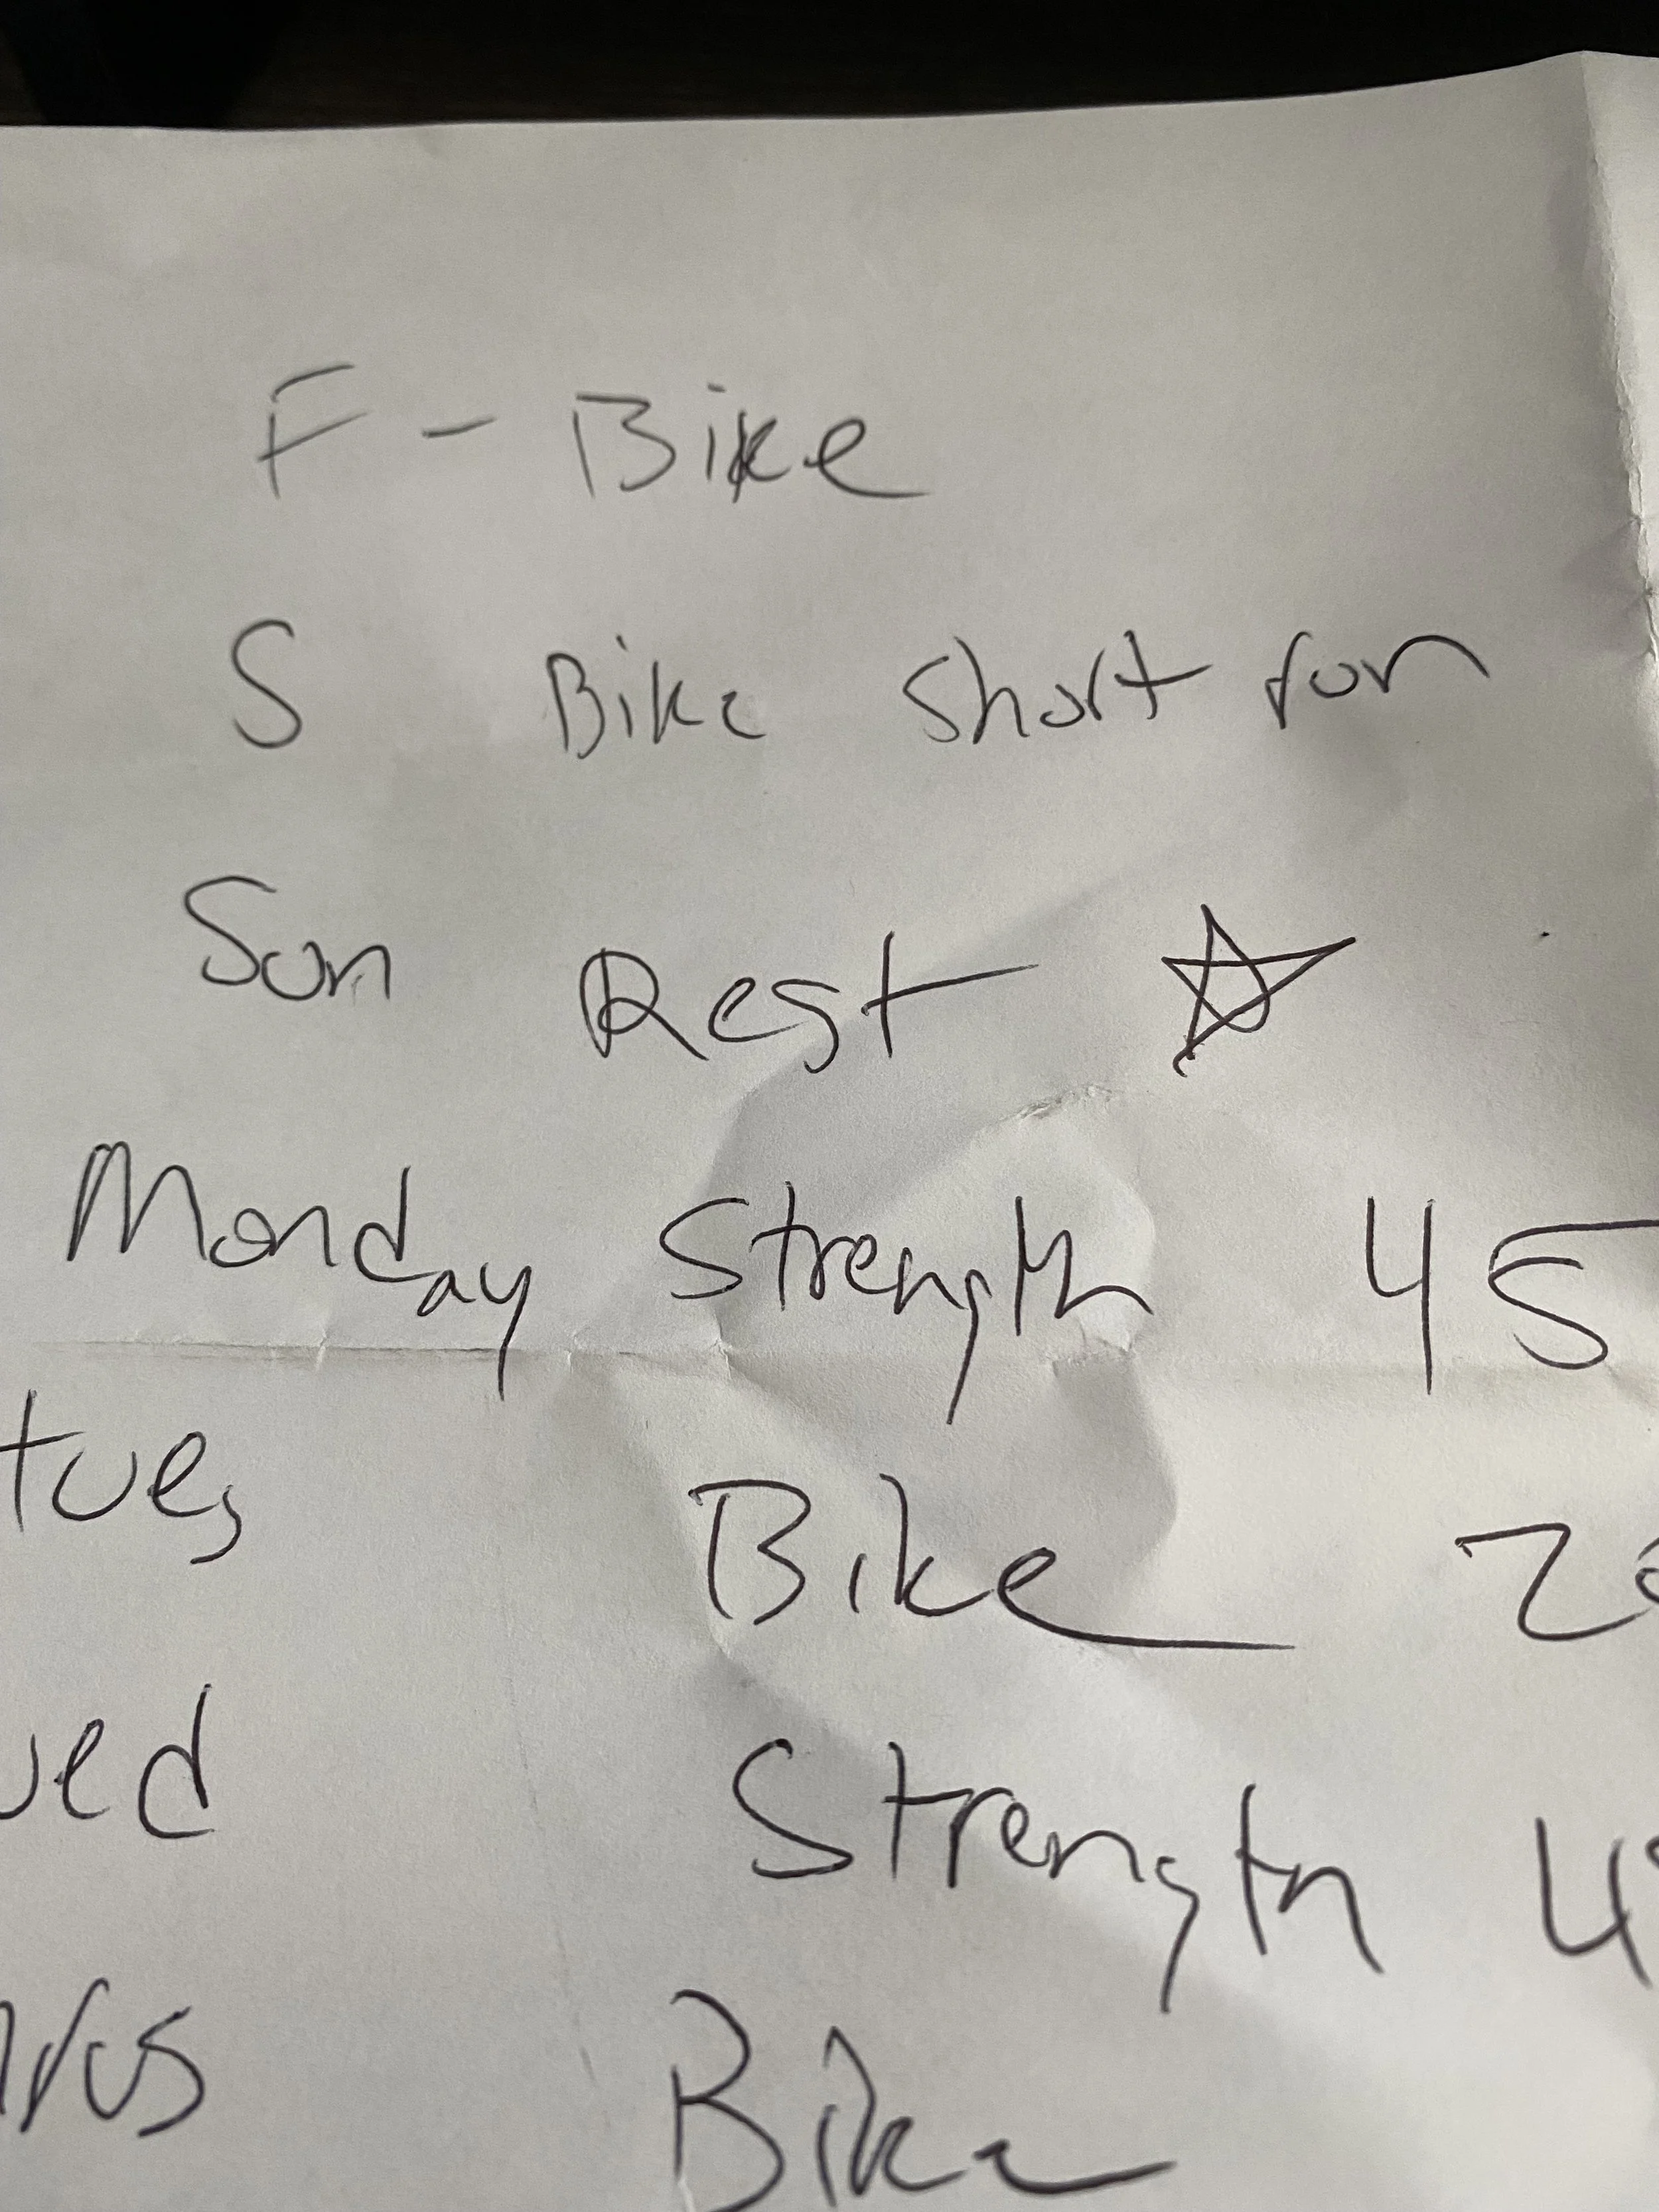 F - Bike
S Bike short run
Sun Rest
Monday Strength 45
tues Bike 20
wed Strength 4
Bike